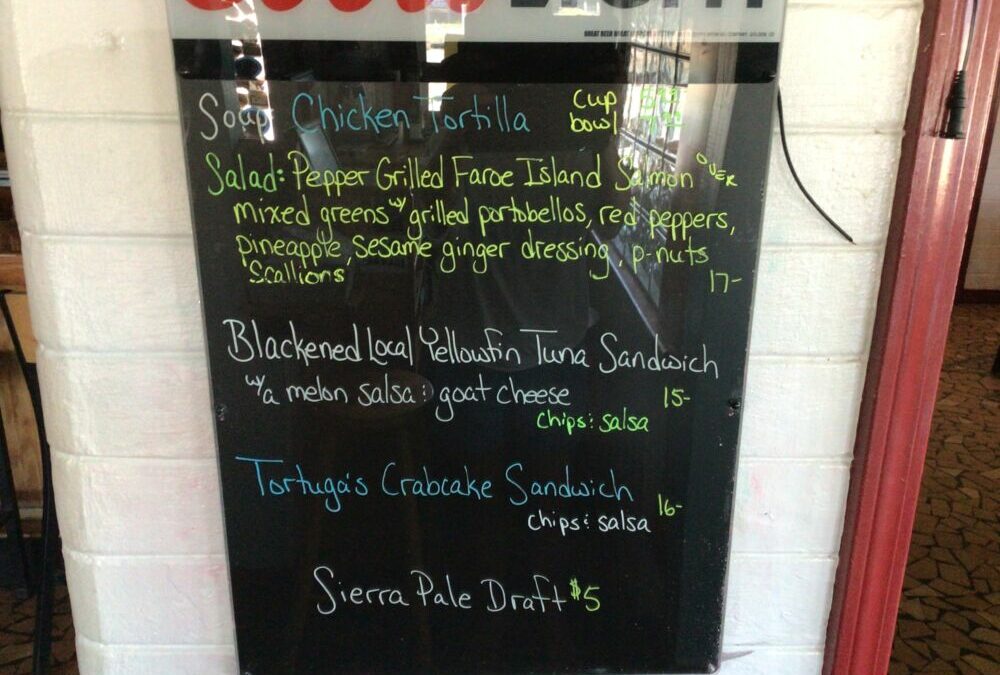 Coors LIGHT
Soup Chicken Tortilla
Cup
bowl
Salad: Pepper Grilled Faroe Island Salmon over
mixed greens w/ grilled portobellos, red peppers,
pineapple, sesame ginger dressing, p-nuts
scallions
17-
Blackened Local Yellowfin Tuna Sandwich
w/a melon salsa : goat cheese 15-
chips : salsa
Tortuga's Crabcake Sandwich 16-
chips : salsa
Sierra Pale Draft $5